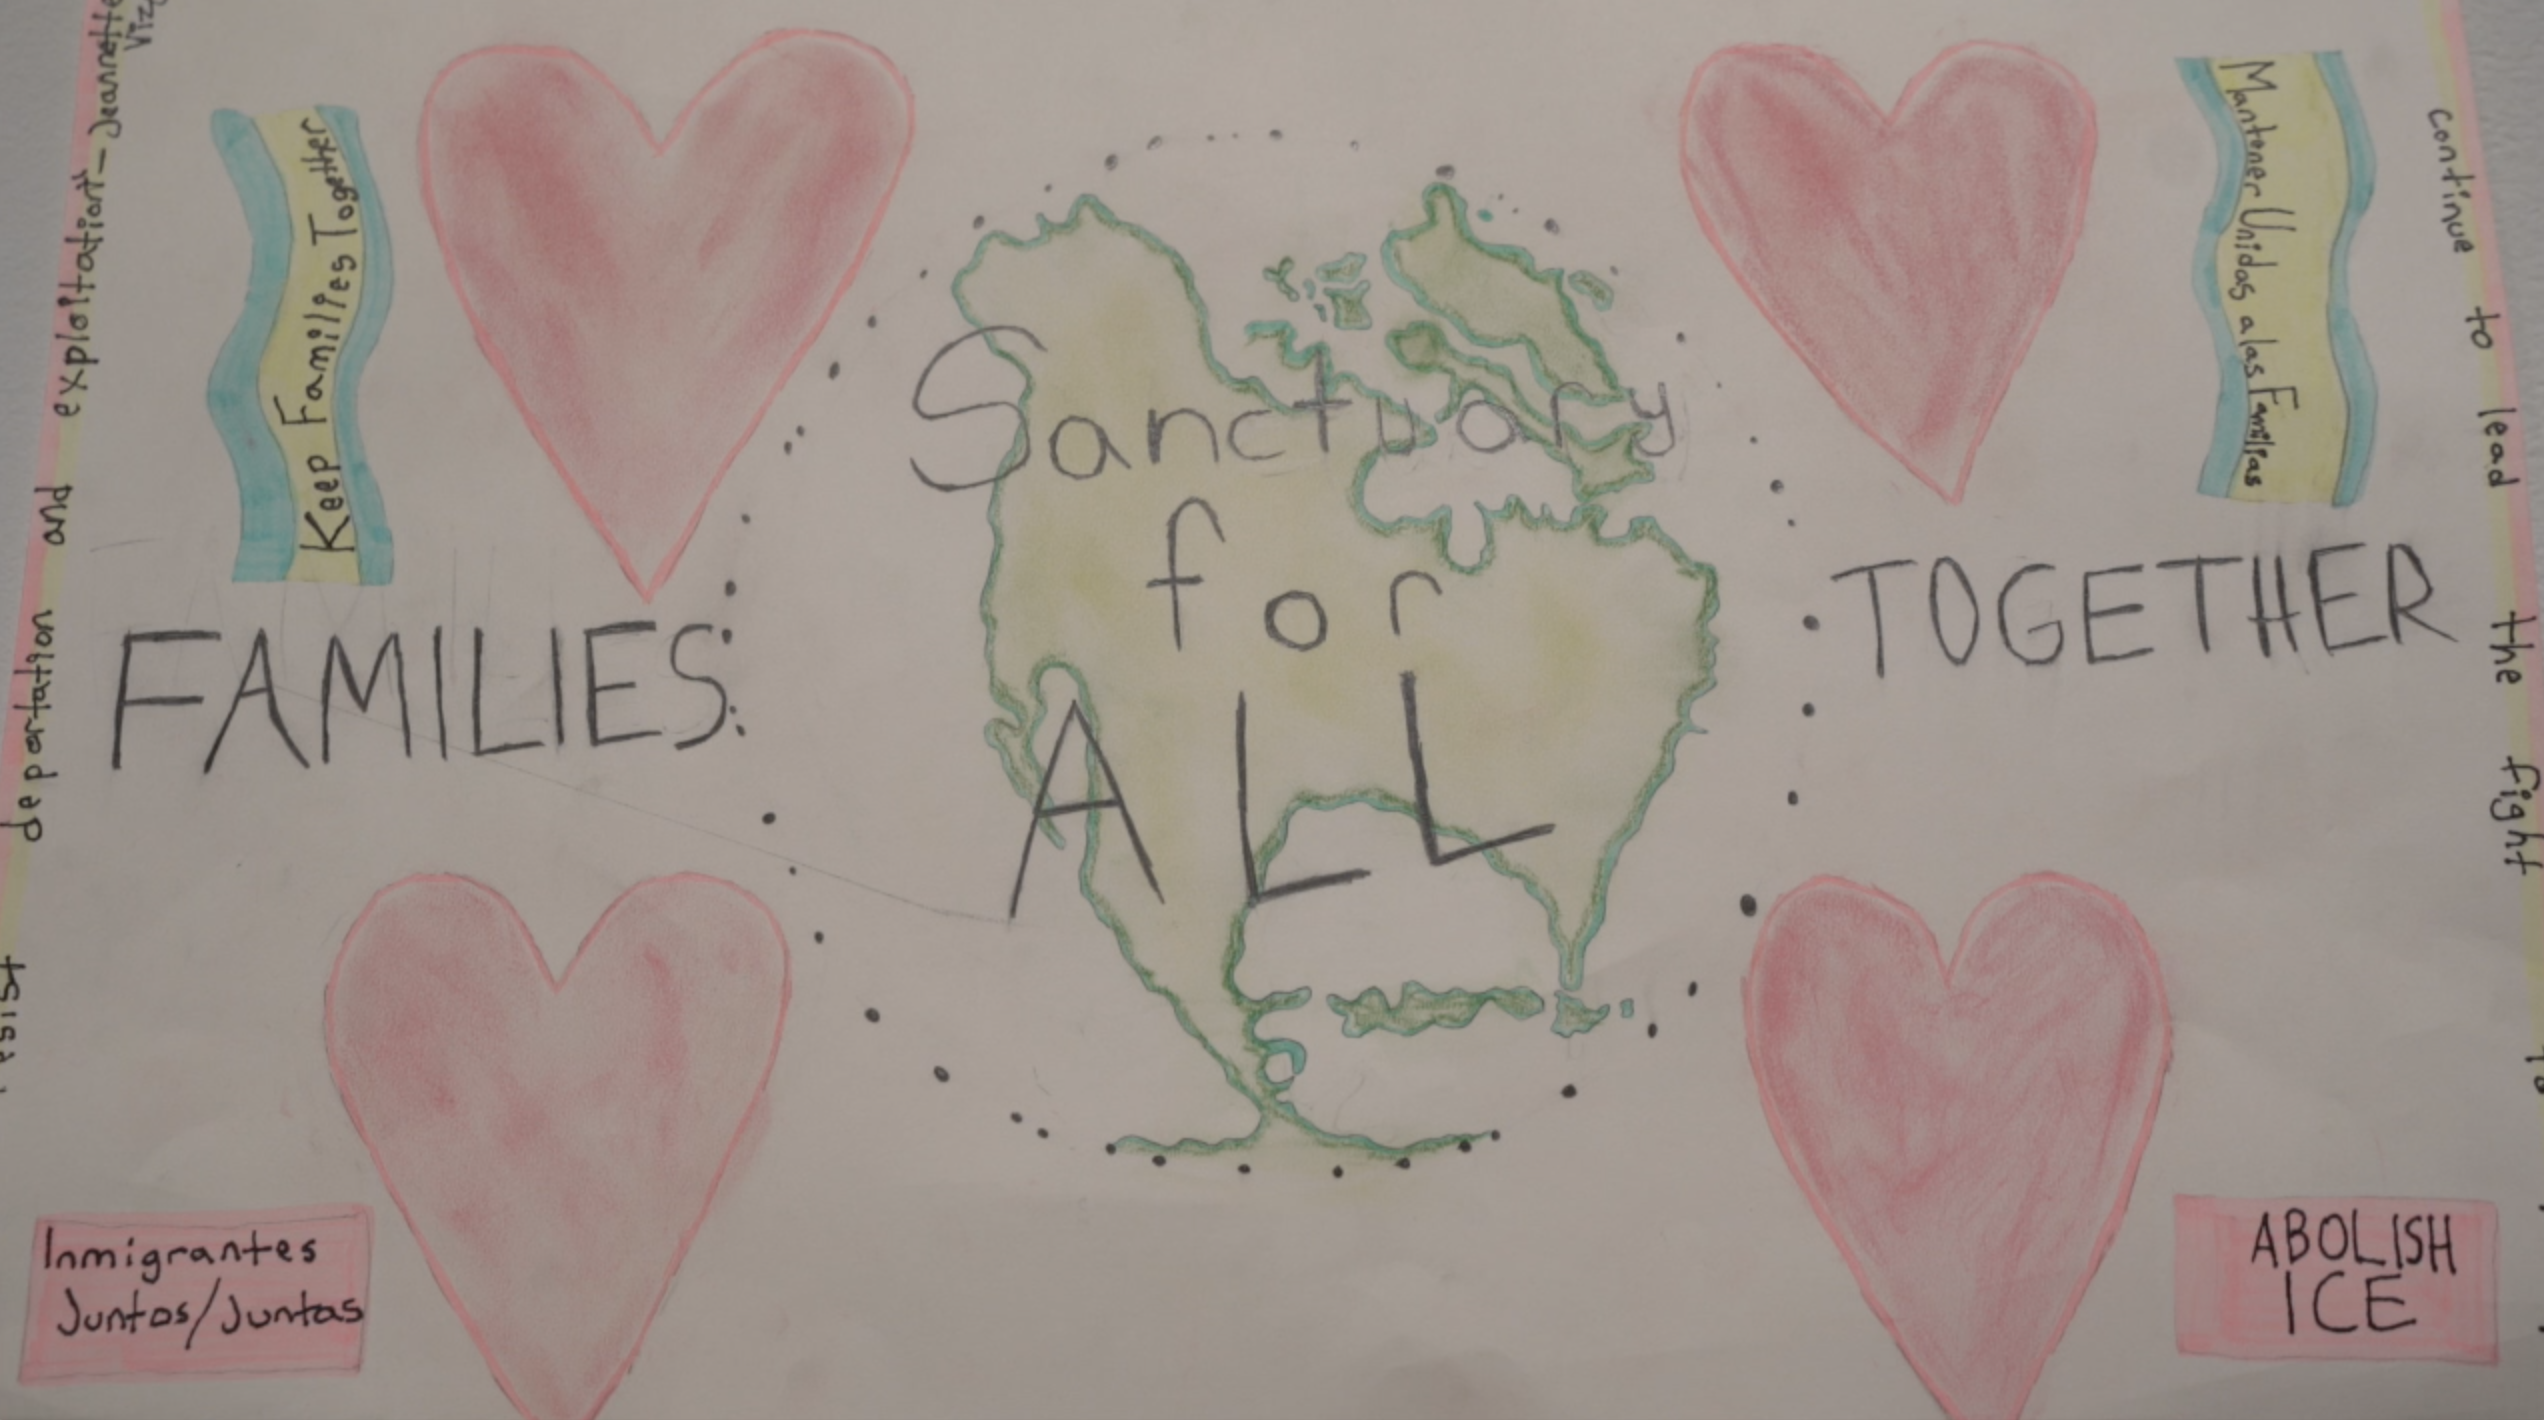 Keep Families Together
Mantener Unidas a las Familias
Sanctuary
for
ALL
FAMILIES
TOGETHER
Inmigrantes
Juntos/Juntas
ABOLISH
ICE
deportation and exploitation" - Jeannette
continue to lead the fight